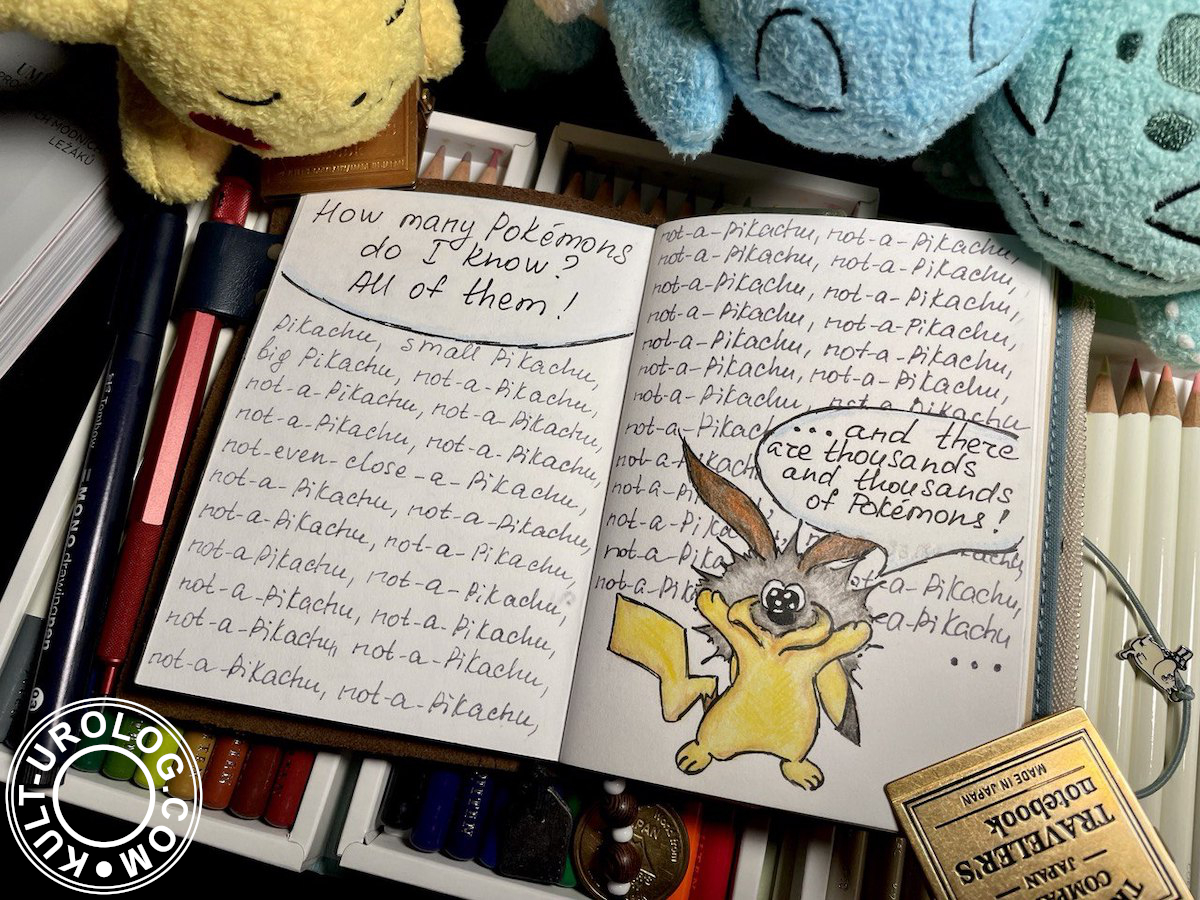 How many Pokémons
do I know?
All of them!
Pikachu, small Pikachu,
big Pikachu, not-a-Pikachu,
not-a-Pikachu, not-a-Pikachu,
not-a-Pikachu, not-a-Pikachu,
not-even-close-a-Pikachu,
not-a-Pikachu, not-a-Pikachu,
not-a-Pikachu, not-a-Pikachu,
not-a-Pikachu, not-a-Pikachu,
not-a-Pikachu, not-a-Pikachu,
not-a-Pikachu, not-a-Pikachu,
not-a-Pikachu, not-a-Pikachu,
not-a-Pikachu, not-a-Pikachu,
not-a-Pikachu, not-a-Pikachu,
not-a-Pikachu, not-a-Pikachu,
not-a-Pikachu, not-a-Pikachu,
not-a-Pikachu, not-a-Pikachu,
not-a-Pikachu, not-a-Pikachu,
not-a-Pikachu, not-a-Pikachu
... and there
are thousands
and thousands
of Pokémons!
-a-Pikachu,
-a-Pikachu
...
Tombow MONO drawing pen
MADE IN JAPAN
TRAVELER'S
notebook
JAPAN
LEŽÁKŮ
KULT-UROLOG.COM